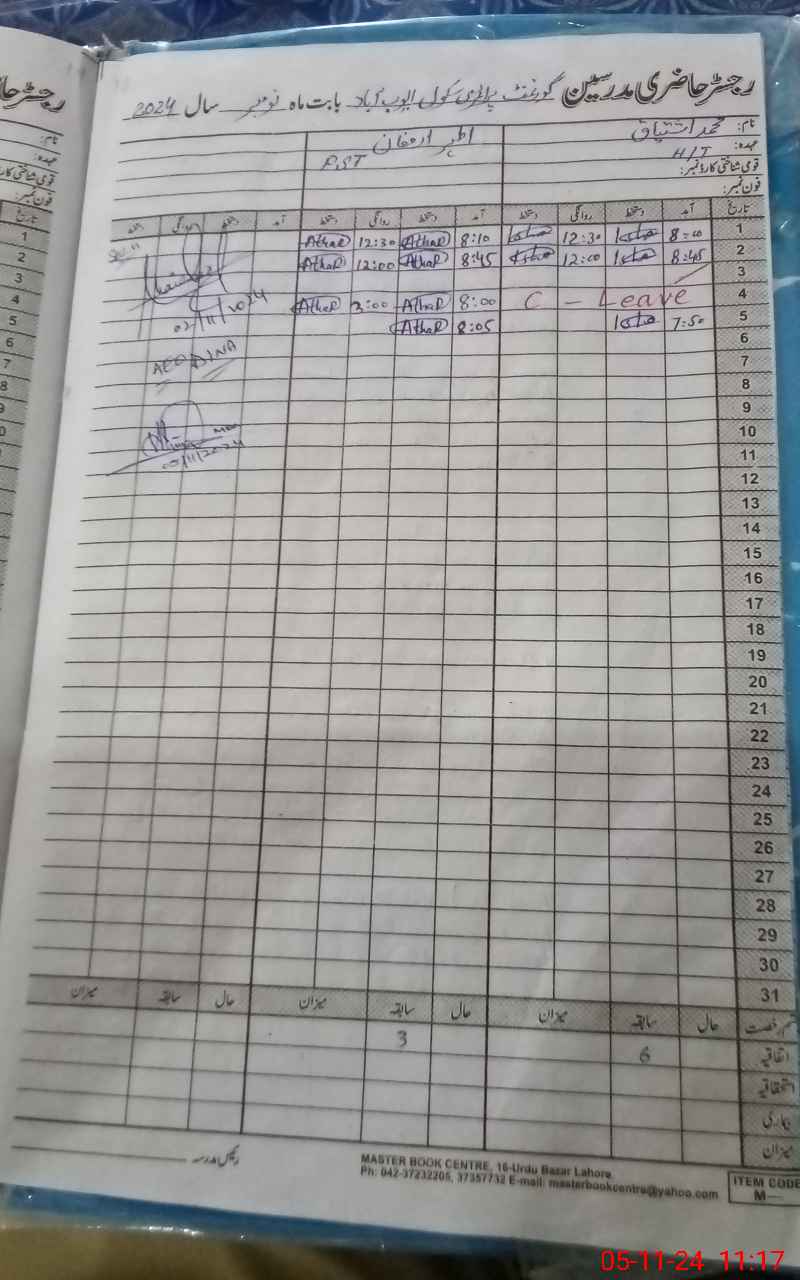 رجسٹر حاضری مدرسین گورنمنٹ پرائمری سکول ایوب آباد بابت ماہ نومبر سال 2024
نام: محمد اشتیاق اطہر
عہدہ: HIT PST
قومی شناختی کارڈ نمبر:
فون نمبر:
تاریخ آمد دستخط روانگی دستخط آمد دستخط روانگی دستخط آمد دستخط روانگی دستخط
1 8:10 12:30 8:10 Athar 12:30 Athar
2 8:45 12:00 8:45 Athar 12:00 Athar
3
4 C - Leave 8:00 Athar 3:00 Athar
02/11/2024
5 7:50 8:05 Athar
6
AEO DINA
7
8
9
10
11
05/11/2024
12
13
14
15
16
17
18
19
20
21
22
23
24
25
26
27
28
29
30
31
قسم رخصت حال سابقہ میزان حال سابقہ میزان حال سابقہ میزان
اتفاقیہ 6 3
استحقاقیہ
بیماری
میزان
رئیس مدرسہ
MASTER BOOK CENTRE, 16-Urdu Bazar Lahore
Ph: 042-37232205, 37357732 E-mail: masterbookcentre@yahoo.com
ITEM CODE
M—
05-11-24 11:17